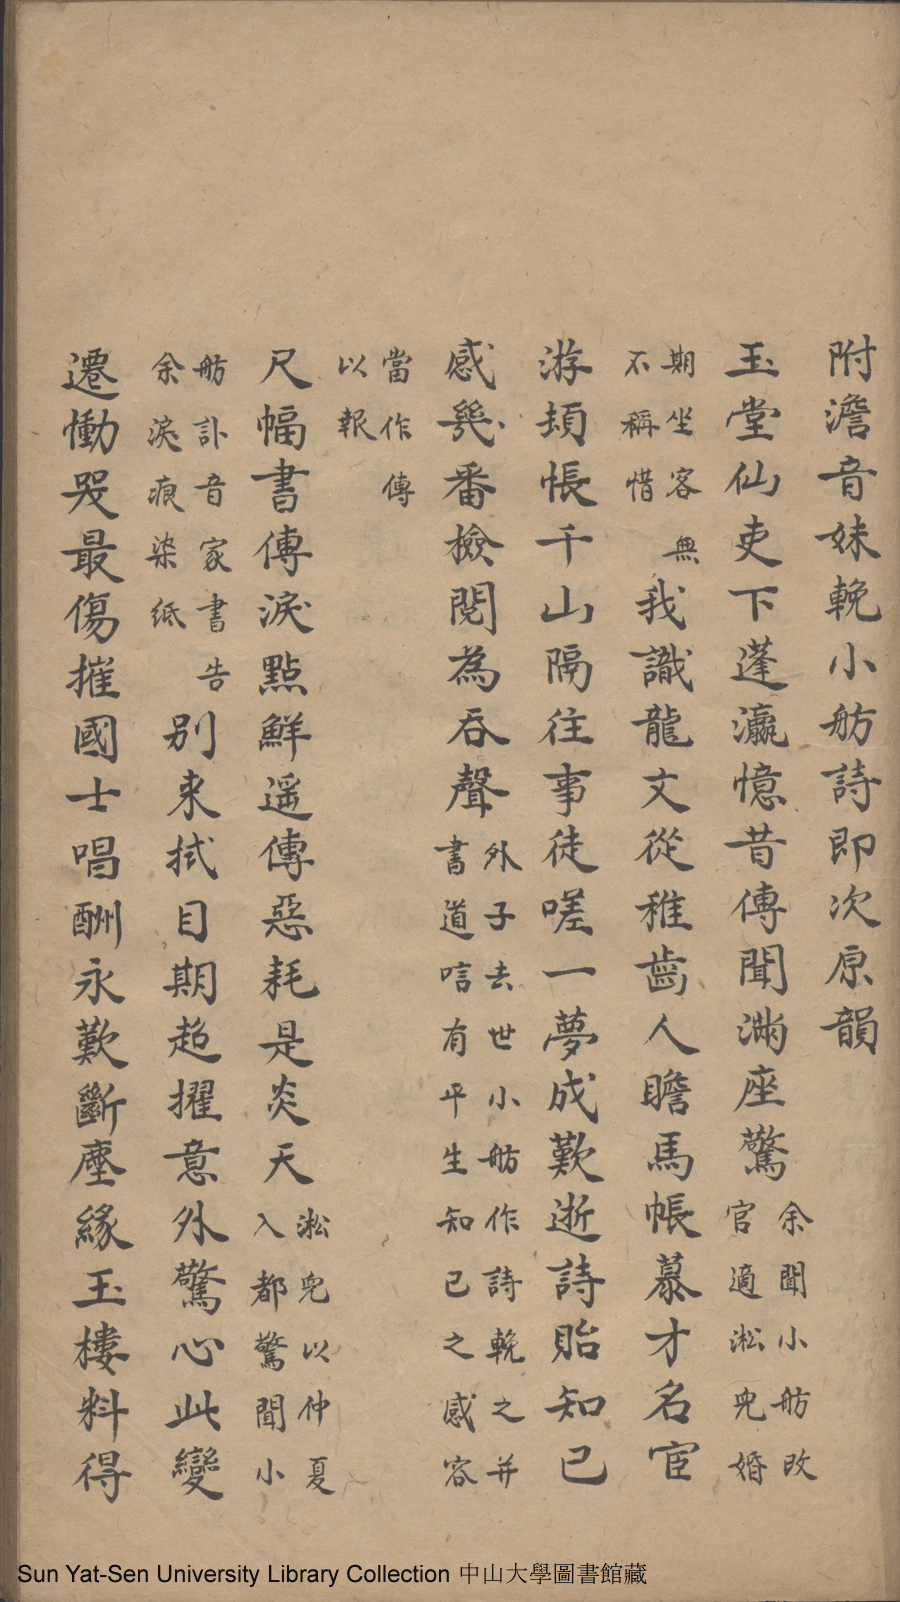 附澹音妹輓小舫詩即次原韻
玉堂仙吏下蓬瀛憶昔傳聞滿座驚余聞小舫改官適淞兒婚
期坐客無不稱惜我識龍文從稚齒人瞻馬帳慕才名宦
游頻悵千山隔往事徒嗟一夢成歎逝詩貽知己
感幾番檢閱為吞聲外子去世小舫作詩輓之并書道唁有平生知己之感容
當作傳以報
尺幅書傳淚點鮮遥傳惡耗是炎天淞兒以仲夏入都驚聞小
舫訃音家書告余淚痕染紙别来拭目期超擢意外驚心此變
遷慟哭最傷摧國士唱酬永歎斷塵緣玉樓料得
Sun Yat-Sen University Library Collection 中山大學圖書館藏